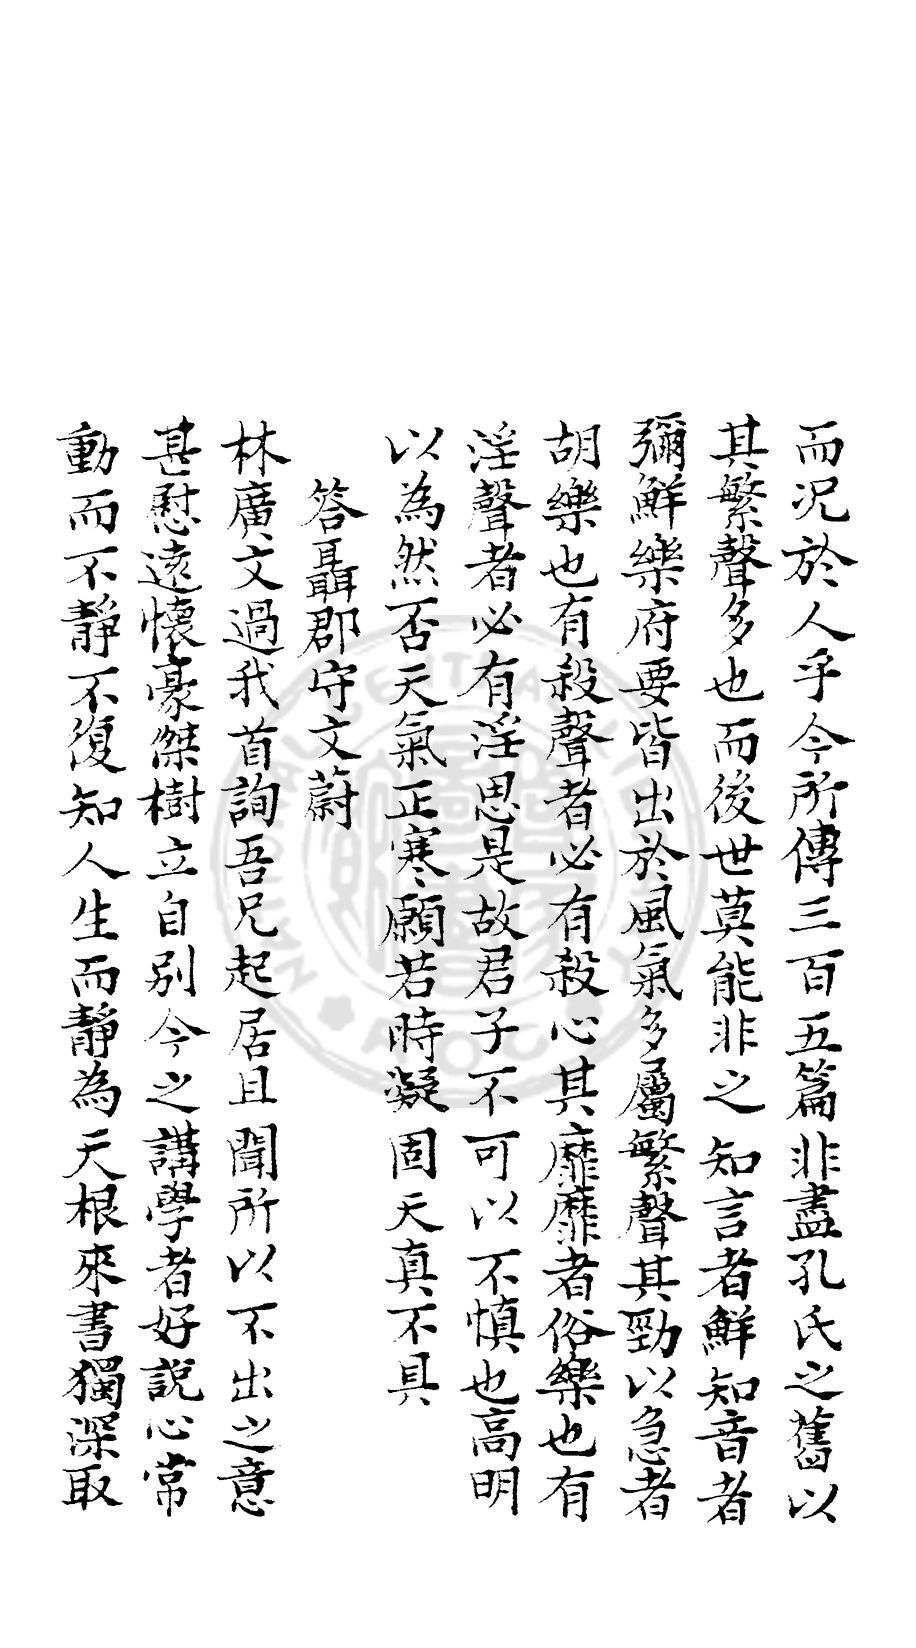 而況於人乎今所傳三百五篇非盡孔氏之舊以
其繁聲多也而後世莫能非之知言者鮮知音者
彌鮮樂府要皆出於風氣多屬繁聲其勁以急者
胡樂也有殺聲者必有殺心其靡靡者俗樂也有
淫聲者必有淫思是故君子不可以不慎也高明
以為然否天氣正寒願若時凝固天真不具
答聶郡守文蔚
林廣文過我首詢吾兄起居且聞所以不出之意
甚慰遠懷豪傑樹立自別今之講學者好說心常
動而不靜不復知人生而靜為天根來書獨深取